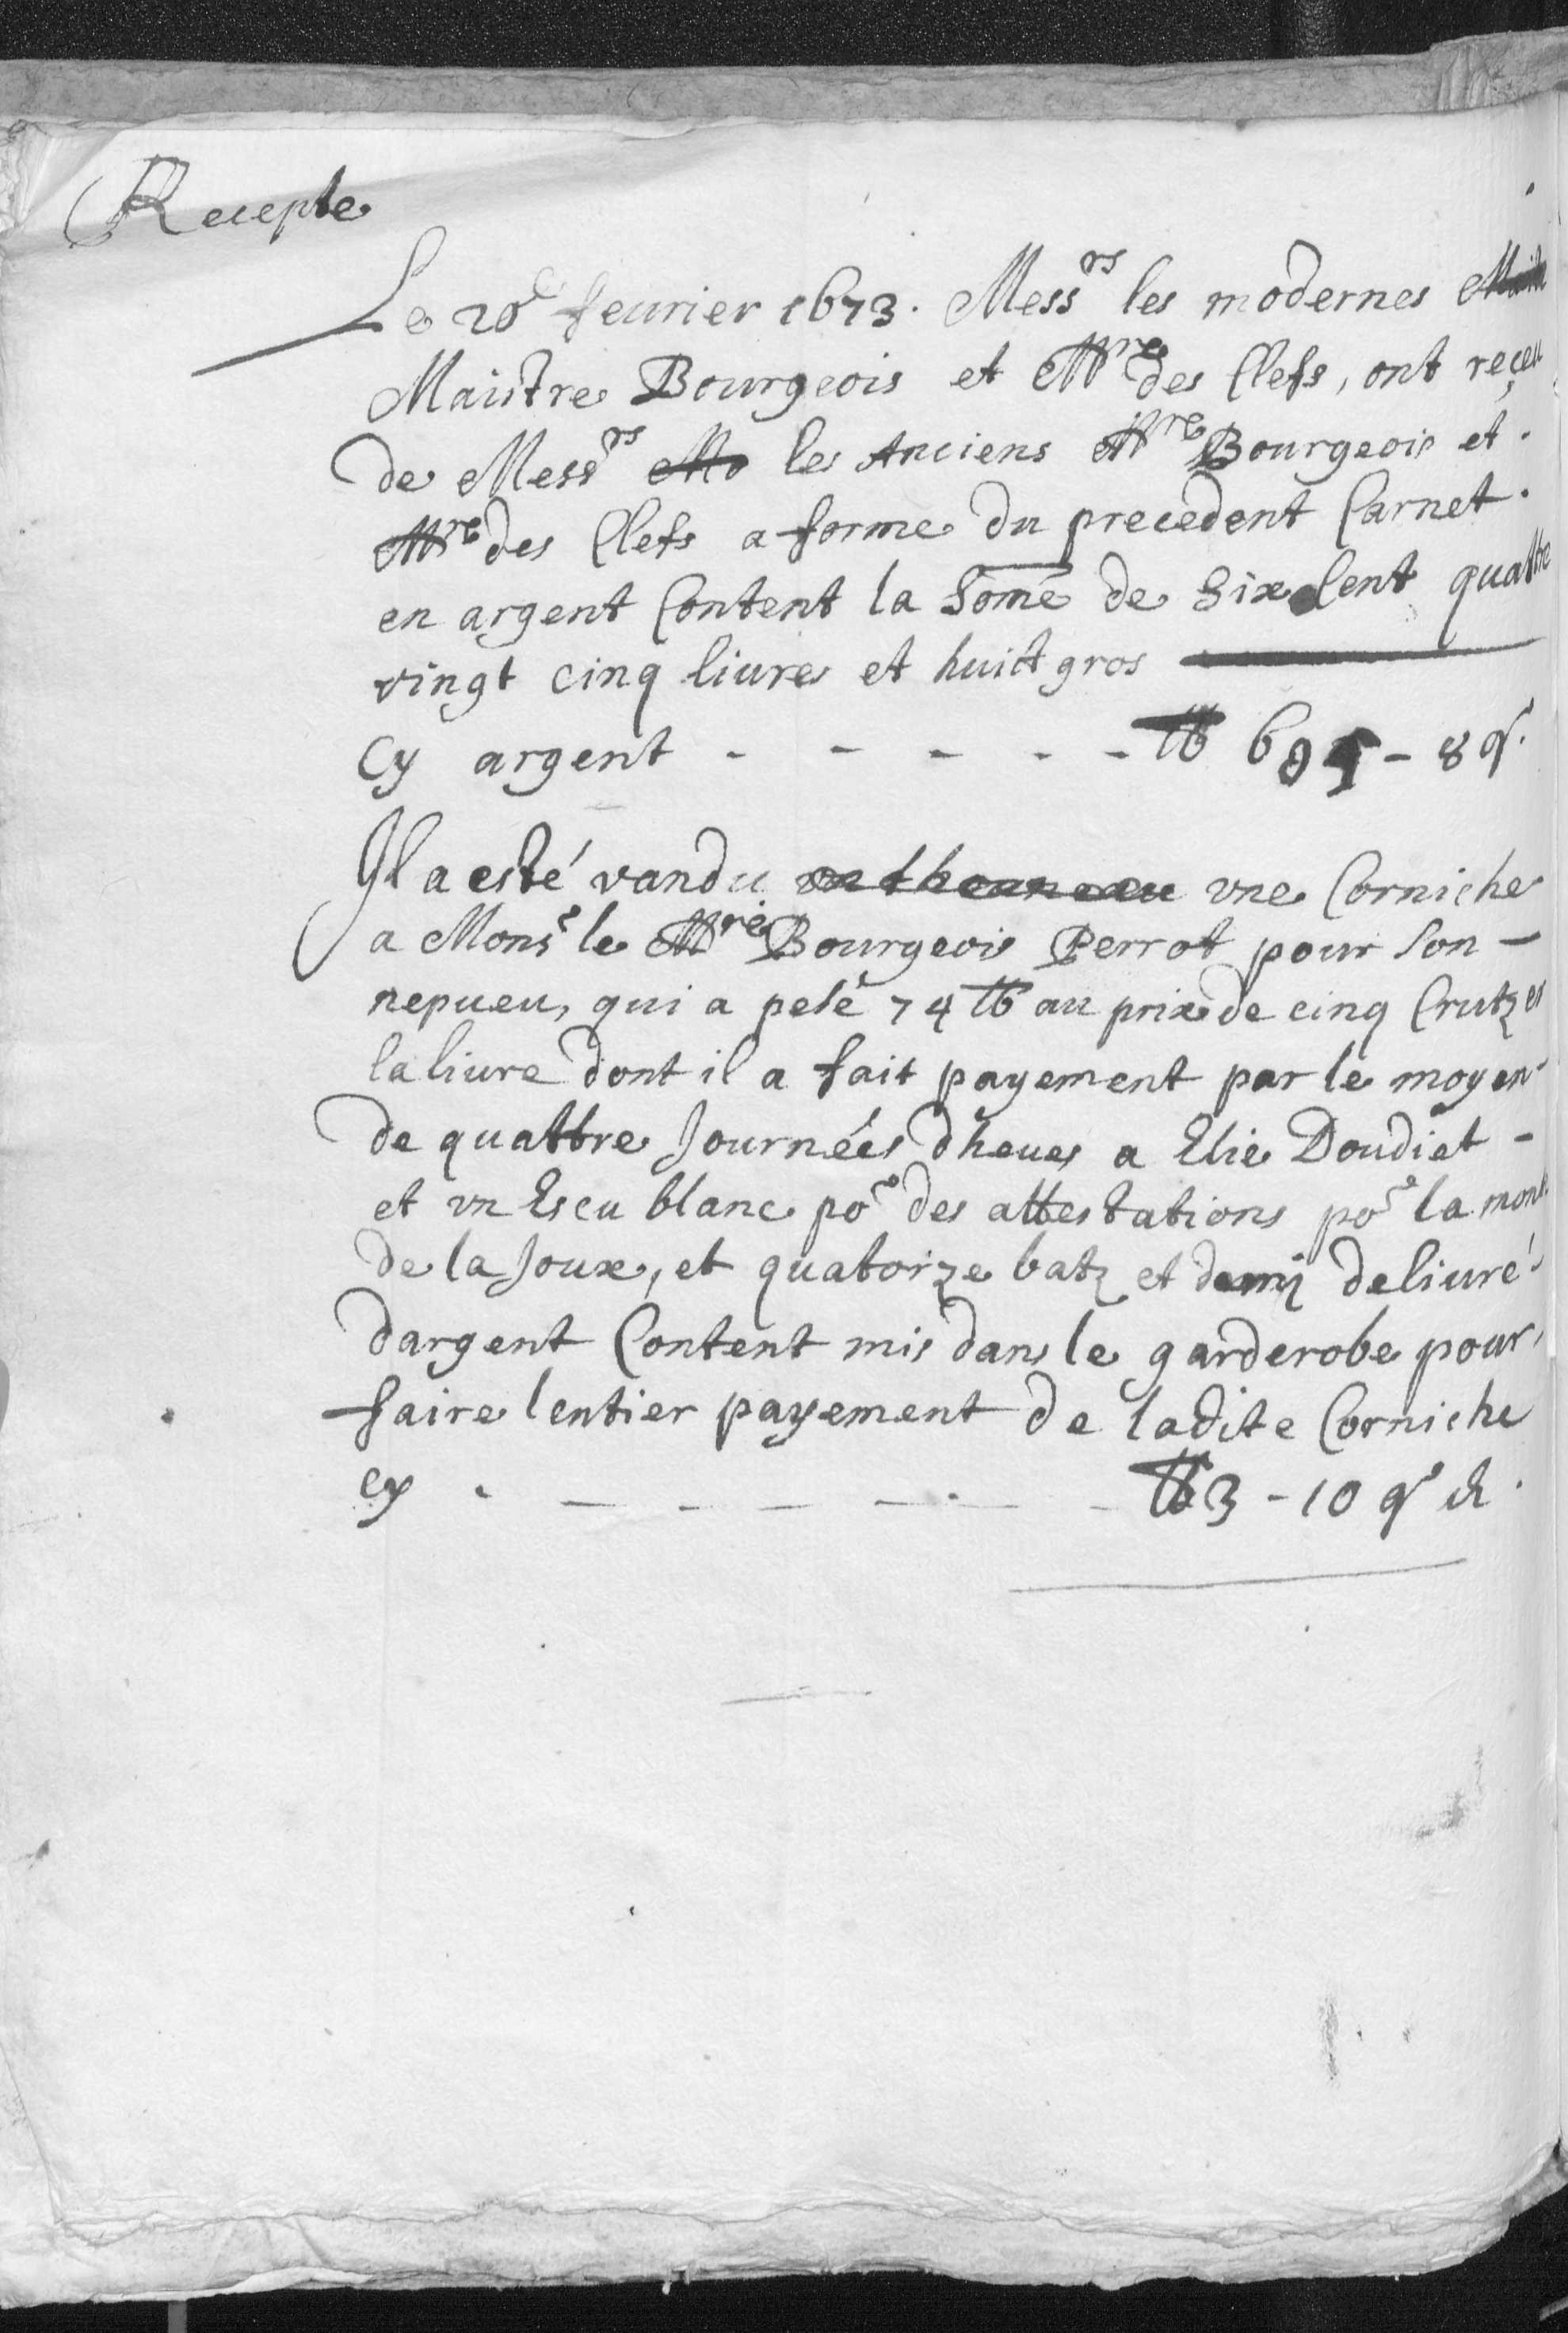 Recepte
Le 20e feurier 1673. Messrs les modernes
Maistre Bourgeois et Mre des Clefs, ont reçeu
de Messrs Mo les Anciens Mre Bourgeois et
Mre des Clefs a forme du precedent Carnet
en argent Content la Some de Six Cent quattre
vingt cinq liures et huict gros
Cy argent - - - - - ℔ 685 - 8 gr.
Il a esté vandu vne Corniche
a Monsr le Mre Bourgeois Perrot pour Son -
nepueu, qui a pesé 74 ℔ au prix de cinq Crutzes
la liure dont il a fait payement par le moyen
de quattre Journées dheues a Elie Doudiet -
et vn Escu blanc por des attestations por la
de la Joux, et quatorze batz et demij deliuré
dargent Content mis dans le garderobe pour,
faire lentier payement de ladite Corniche
cy - - - - - - ℔ 3 - 10 gr